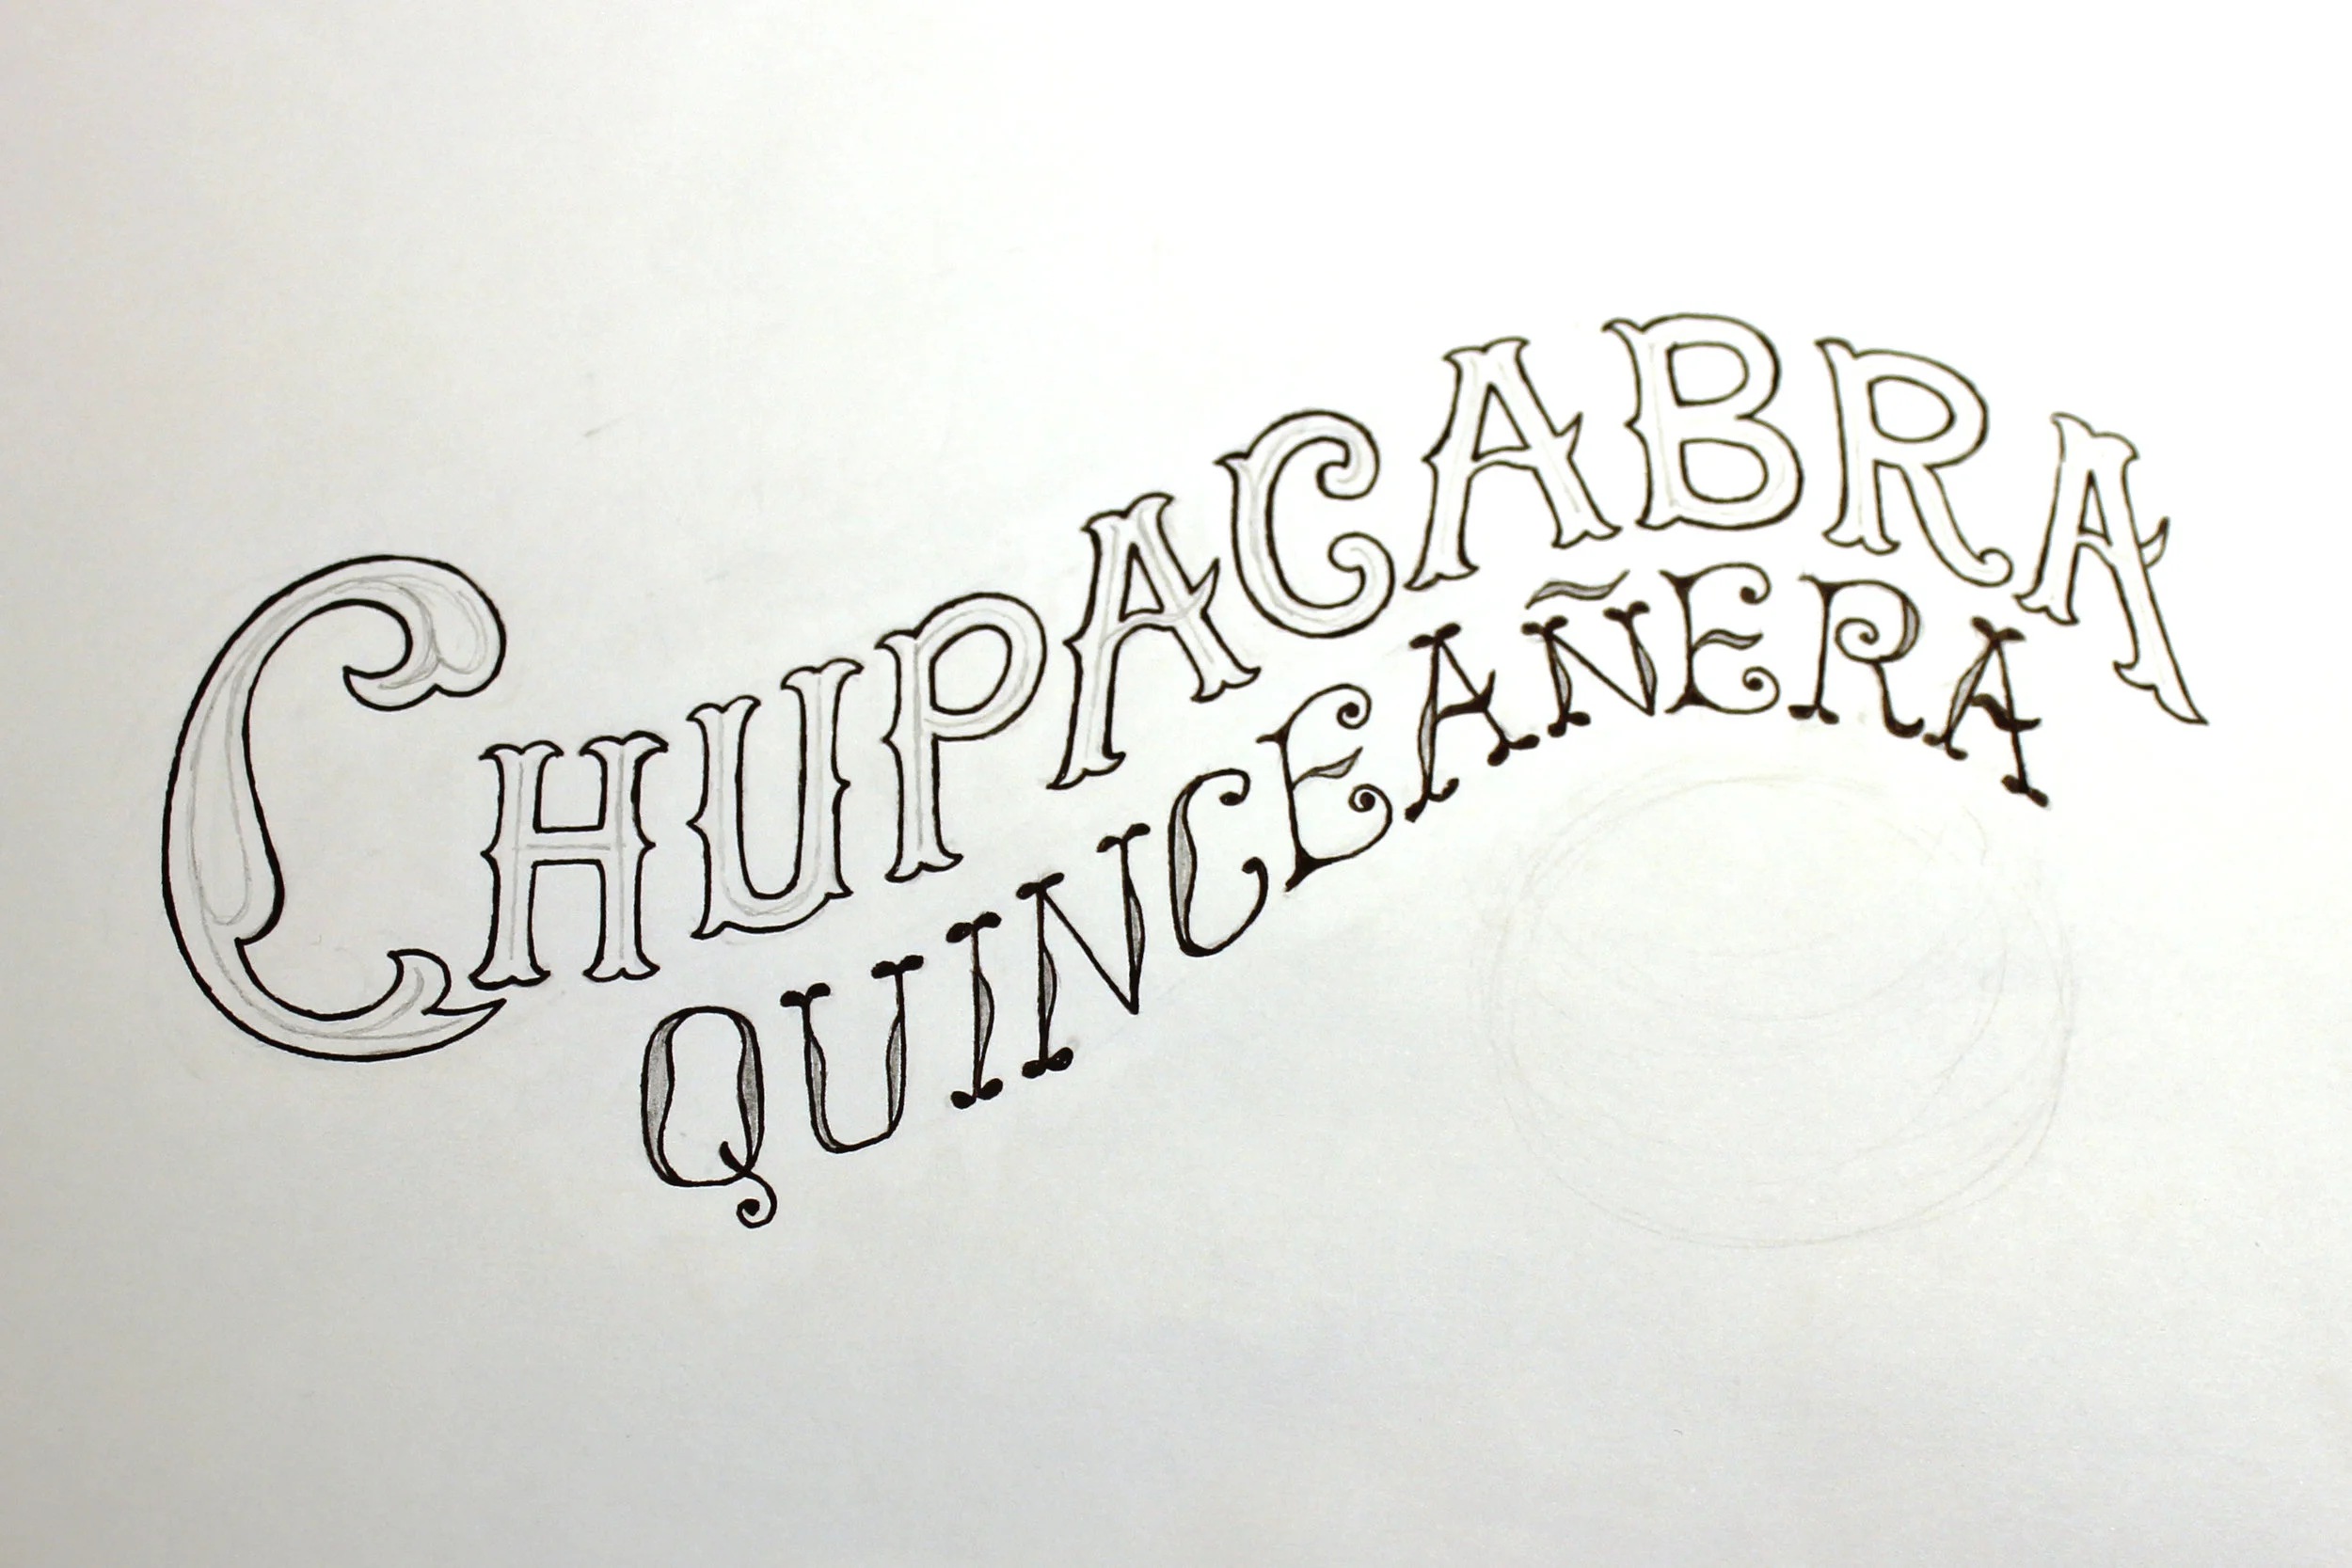 CHUPACABRA
QUINCEAÑERA